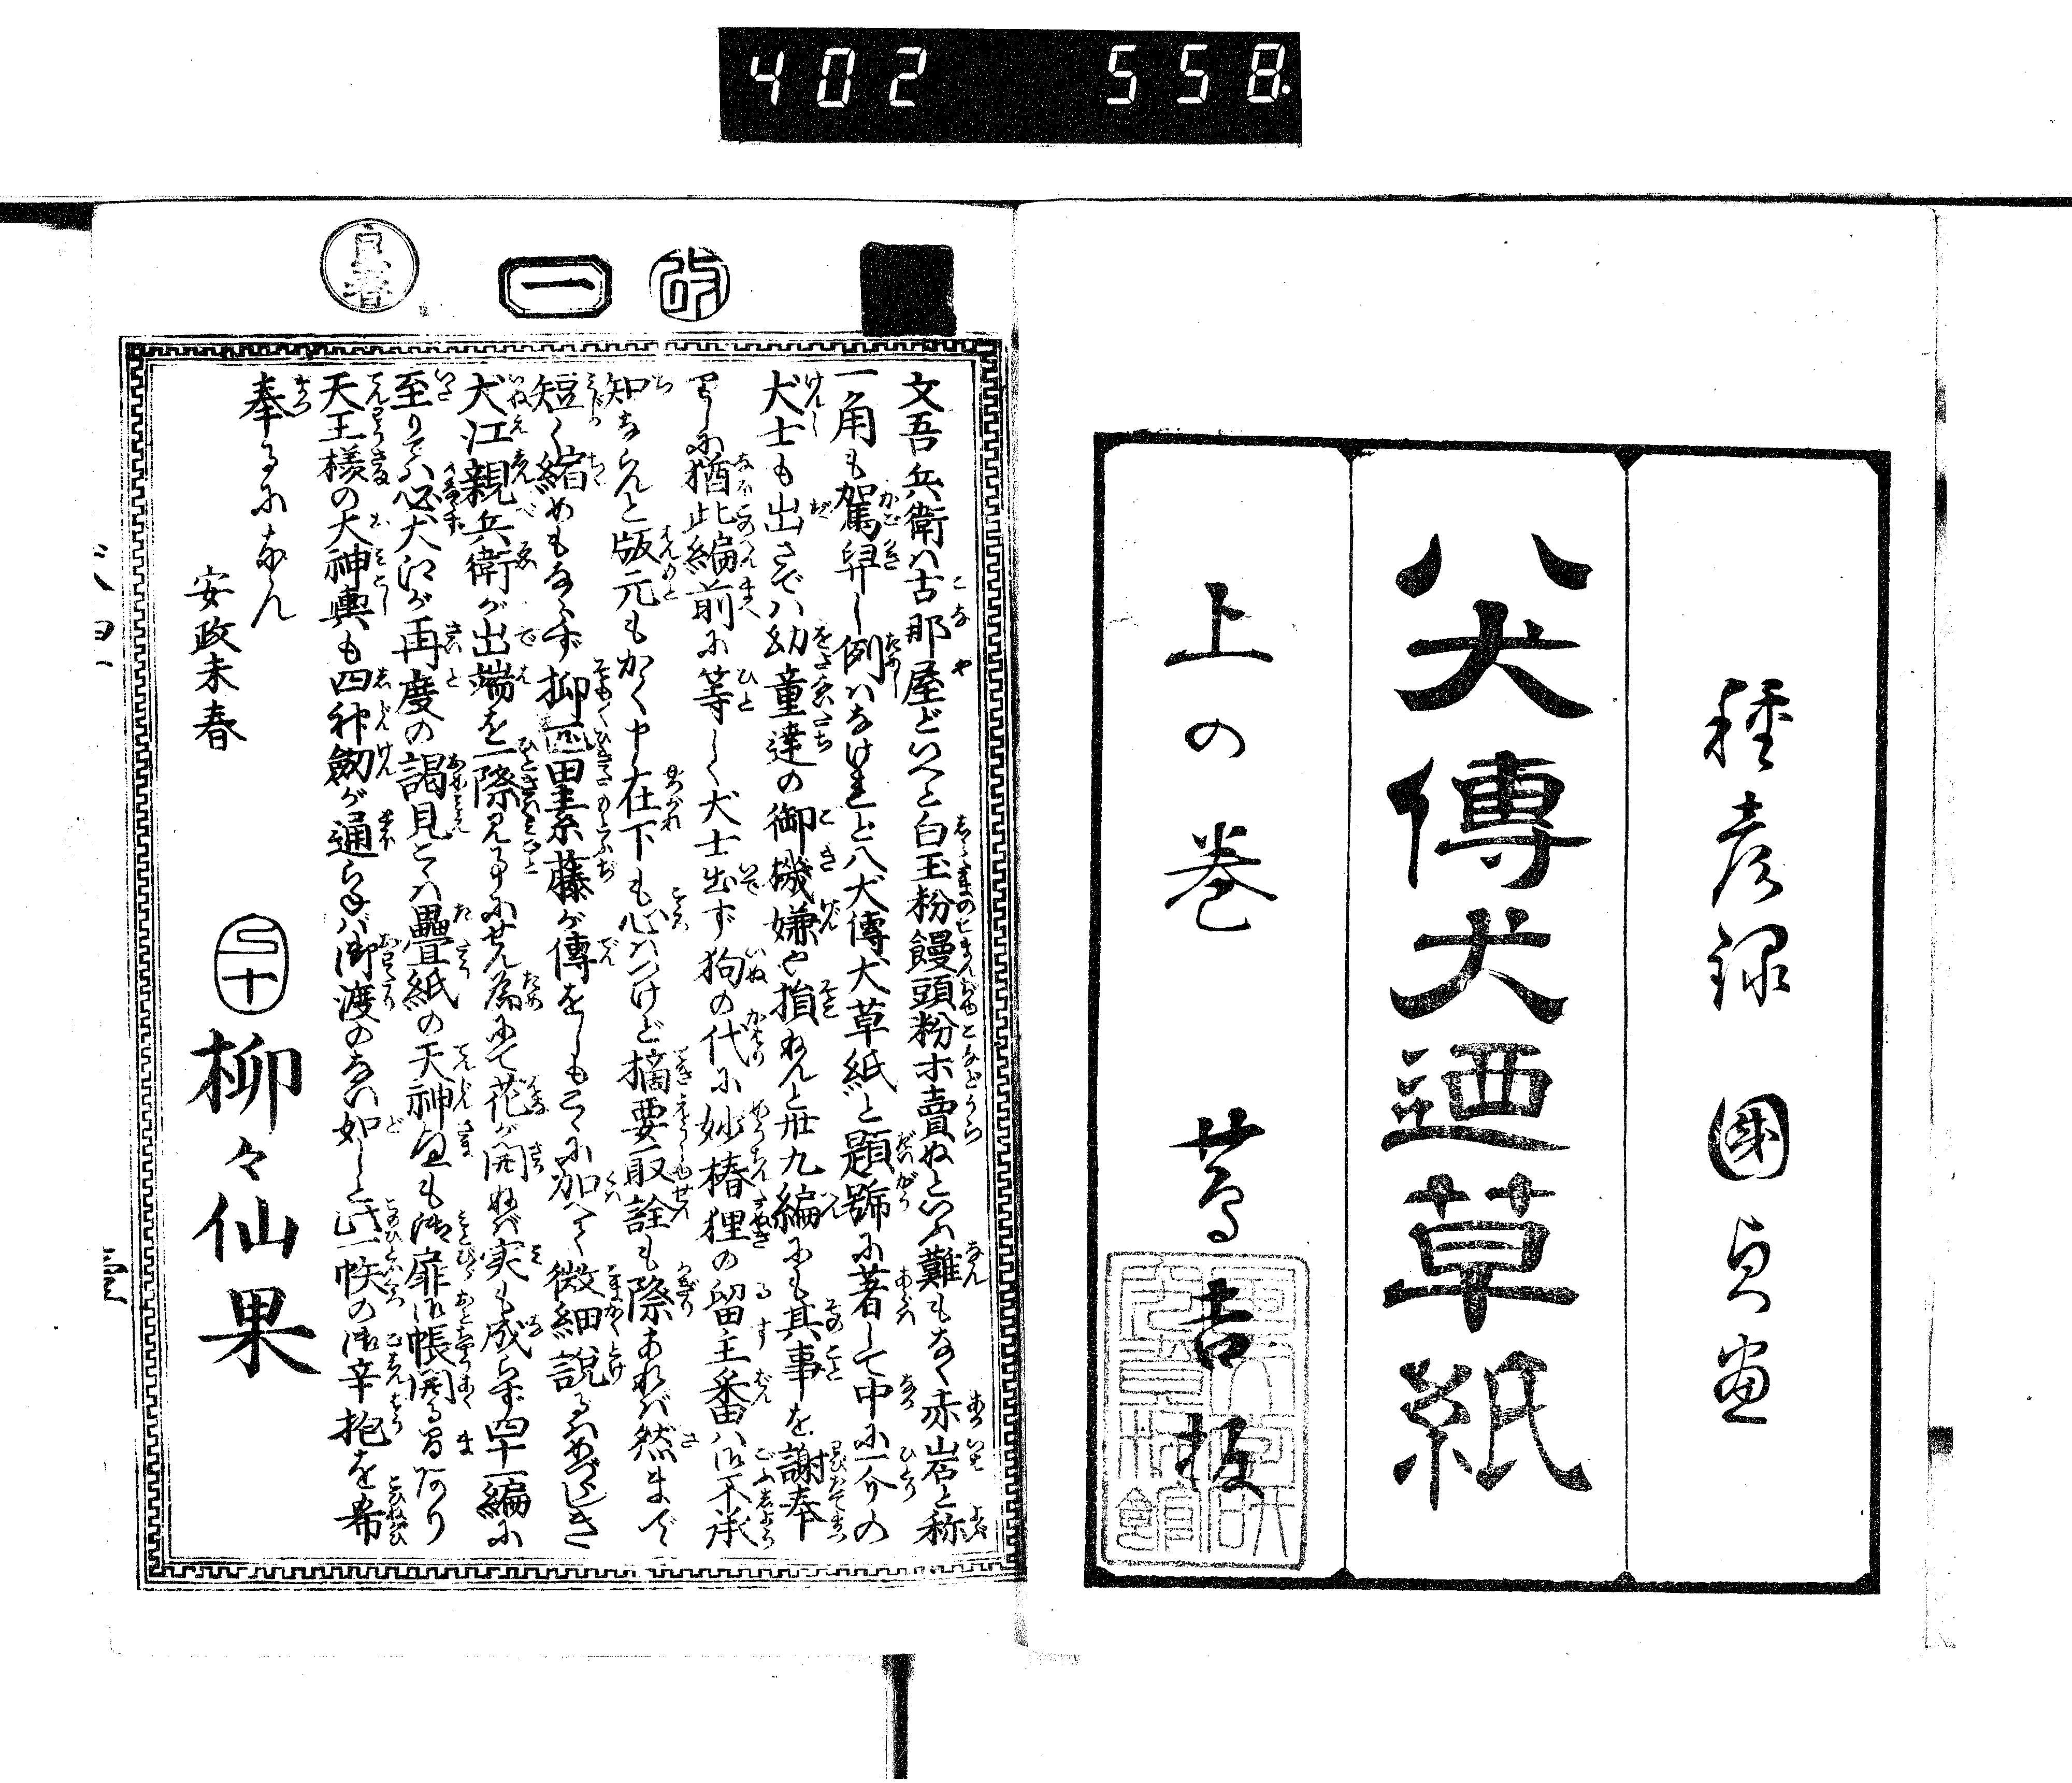 402 558.
種彦録 國貞画
八犬傳犬廼草紙
上の巻 蔦吉板
改
一
文吾兵衛ハ古那屋どいへと白玉粉饅頭粉ホ賣ぬといふ難もなく赤岩と称
一角も駕舁し例ハなけれど八犬傳犬草紙と題号に著して中に一介の
犬士も出さでハ幼童達の御機嫌や損ねんと丗九編にも其事を謝奉
りしに猶此編前に等しく犬士出ず狗の代に妙椿狸の留主番ハ御不承
知ならんと版元もかく申在下も心ハつけど摘要取詮も際あれバ然まで
短く縮めもならず抑蟇田素藤が傳をしもこゝに加へて微細説るハめづらしき
犬江親兵衛が出端を一際見事にせん為にて花が開ねバ実も成らず四十一編に
至りてハ必犬江が再度の謁見こハ疊紙の天神様も御扉御帳開る習あり
天王様の大神輿も四神劔が通らねバ御渡のなハ如しと此一帙の御辛抱を希
奉るになん
安政未春
柳々仙果